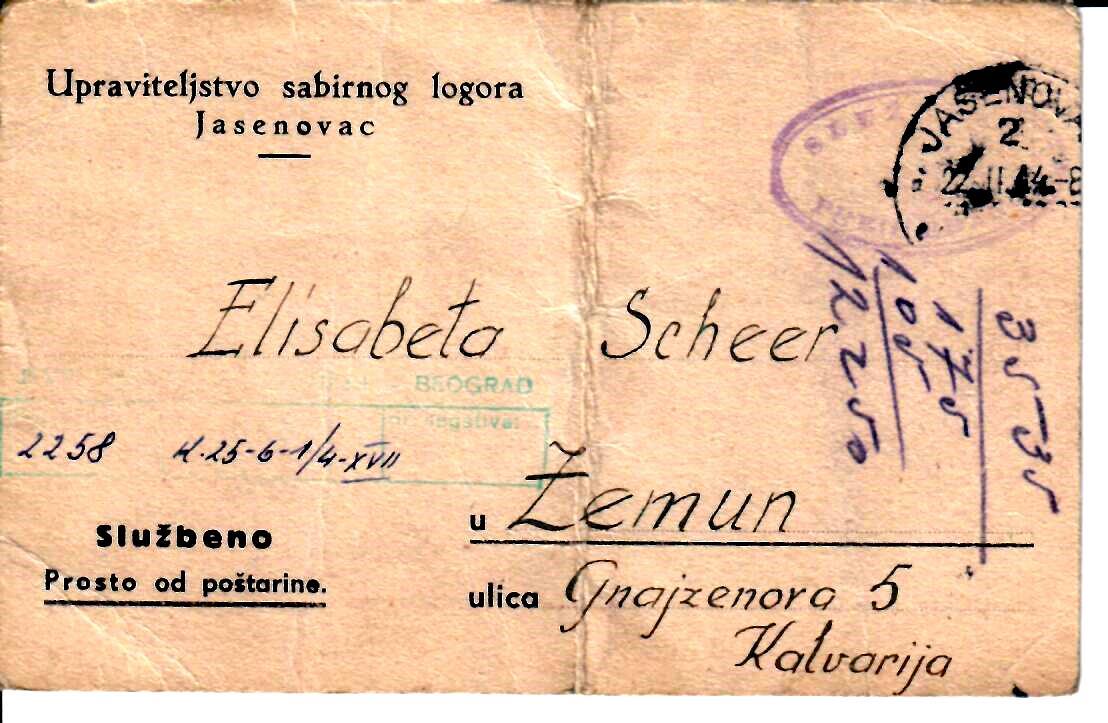 Upraviteljstvo sabirnog logora
Jasenovac
JASENOVA
2
22.II.44-8
Elisabeta Scheer
BEOGRAD
2258 K.25-6-1/4-XVII
Službeno
Prosto od poštarine.
u Zemun
ulica Gnajzenora 5
Kalvarija
35-35
175
105
12250